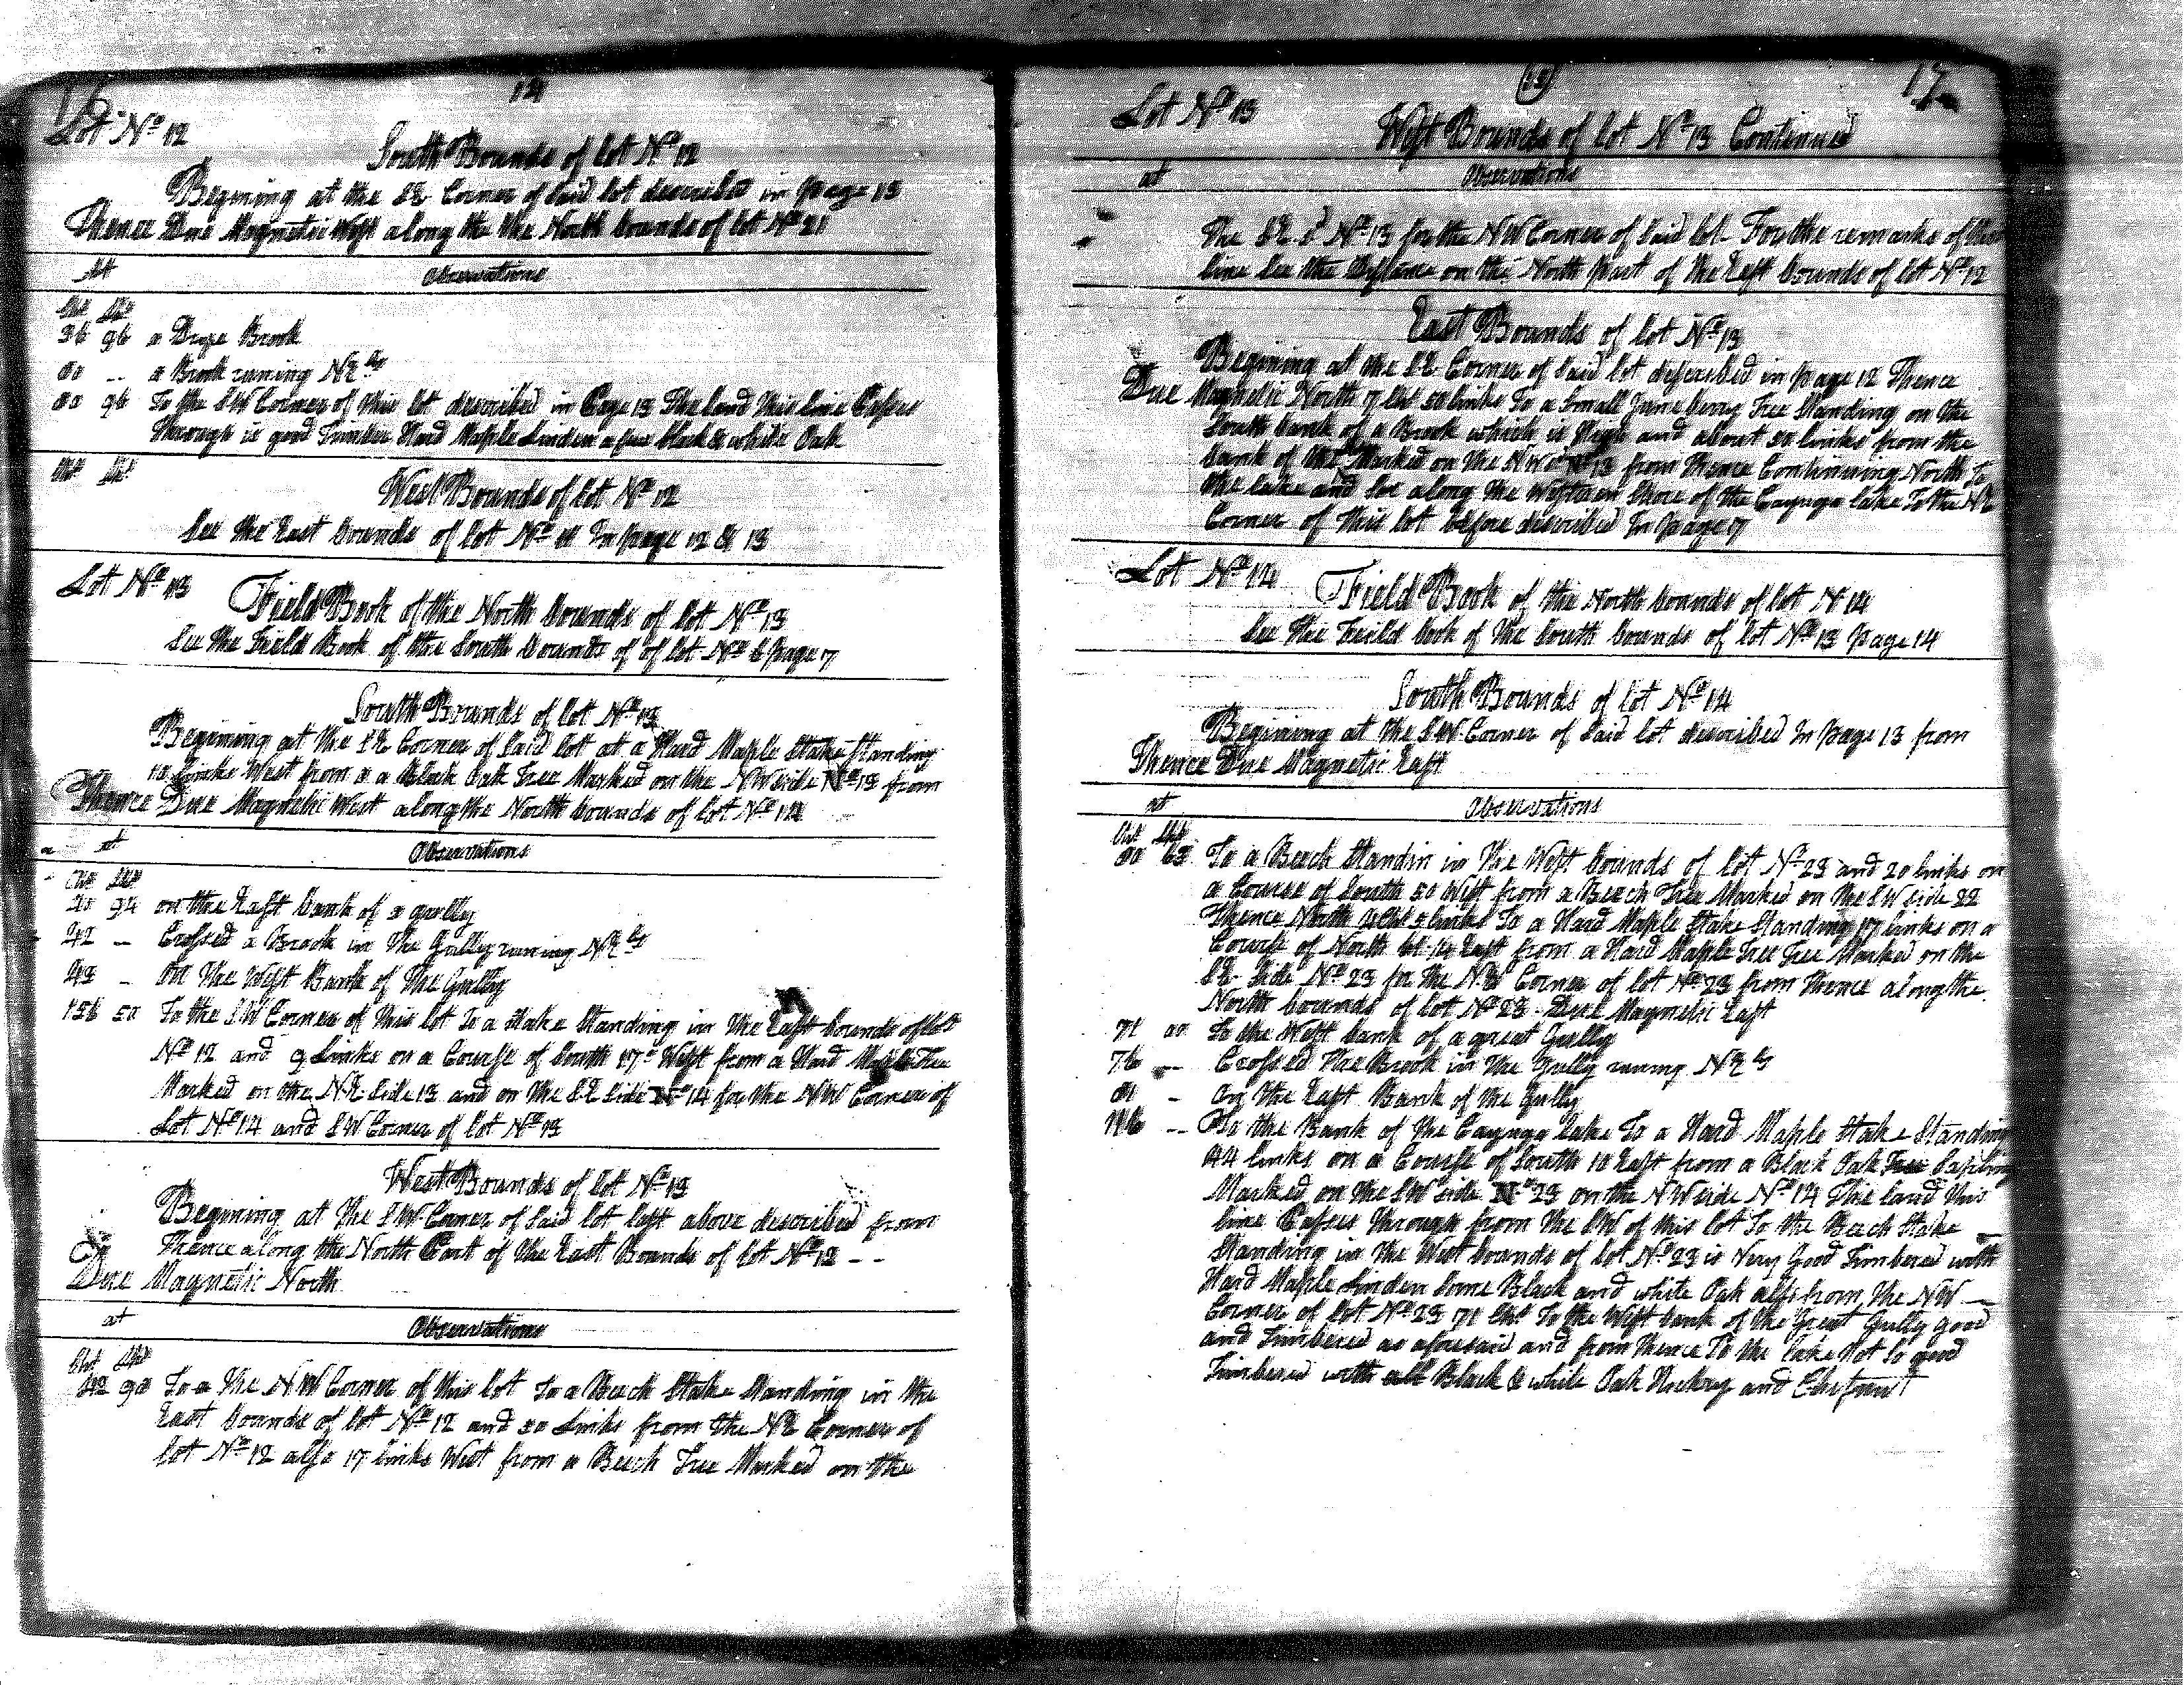 16
14
Lot No 12
South Bounds of lot No 12
Begining at the SE Corner of Said lot described in page 13
Thence Due Magnetic West along the the North bounds of lot No 21
At Observations
Chs Lks
36 96 a Large Brook
80 -- a Brook runing NEly
80 96 To the SW Corner of this lot described in Page 13 The land this line Passes
through is good Timber Hard Maple Linden a few black & white Oak
Chs Lks
West Bounds of lot No 12
See the East bounds of lot No 11 In page 12 & 13
Lot No 13
Field Book of the North bounds of lot No 13
See the Field Book of the South bounds of of lot No 6 page 7
South Bounds of lot No 13
Begining at the SE Corner of Said lot at a Hard Maple Stake Standing
18 links West from a a Black Oak Tree Marked on the NW side No 13 from
Thence Due Magnetic West along the North bounds of lot No 14
at Observations
Chs Lks
20 94 on the East bank of a gully
42 - Crossed a Brook in the Gully runing NEly
43 - on the West Bank of the Gully
156 50 To the SW Corner of this lot To a Stake Standing in the East bounds of lot
No 12 and 9 Links on a Course of South 17° West from a Hard Maple Tree
Marked on the NE Side 13 and on the SE Side No 14 for the NW Corner of
Lot No 14 and SW Corner of lot No 13
West Bounds of lot No 13
Begining at the SW Corner of Said lot last above described from
Thence along the North Part of the East Bounds of lot No 12 - -
Due Magnetic North
at Observations
Chs Lks
42 90 To a the NW Corner of this lot to a Beech Stake Standing in the
East bounds of lot No 12 and 50 Links from the NE Corner of
lot No 12 also 17 links West from a Beech Tree Marked on the
15
17
Lot No 13
West Bounds of lot No 13 Continued
at Observations
The SE S No 13 for the NW Corner of Said lot For the remarks of this
line See the Distance on the North part of the East bounds of lot No 12
East Bounds of lot No 13
Begining at the SE Corner of Said lot described in page 12 Thence
Due Magnetic North 7 Chs 50 links To a Small June berry Tree Standing on the
South bank of a Brook which is High and about 50 links from the
bank of the Marked on the NW No 13 from thence Continuing North To
the lake and So along the Western Shore of the Cayuga lake To the NE
Corner of this lot before described In page 7
Lot No 14
Field Book of the North bounds of lot N 14
See the Feild book of the South bounds of lot No 13 page 14
South Bounds of lot No 14
Begining at the SW Corner of Said lot described In page 13 from
Thence Due Magnetic East
at Observations
Chs Lks
80 63 To a Beech Standin in the West bounds of lot No 23 and 20 links on
a Course of South 50 West from a Beech Tree Marked on the SW side 22
Thence North links To a Hard Maple Stake Standing 17 links on a
Course of North East from a Hard Maple Tree Tree Marked on the
SE Side No 23 for the NW Corner of lot No 23 from thence along the
North bounds of lot No 23 Due Magnetic East
71 To the West bank of a great Gully
76 -- Crossed the Brook in the Gully runing NEly
81 - on the East Bank of the Gully
-- To the Bank of the Cayuga lake To a Hard Maple Stake Standing
44 links on a Course of South 10 East from a Black Oak Tree Sapling
Marked on the SW side No 23 on the NW side No 14 The land this
line Passes through from the SW of this lot To the Beech Stake
Standing in the West bounds of lot No 23 is very Good Timbered with
Hard Maple Linden Some Black and white Oak also from the NW
Corner of lot No 23 71 Chs To the West bank of the Great Gully good
and Timbered as aforesaid and from thence To the lake not So good
Timbered with all Black & white Oak Hickory and Chesnut